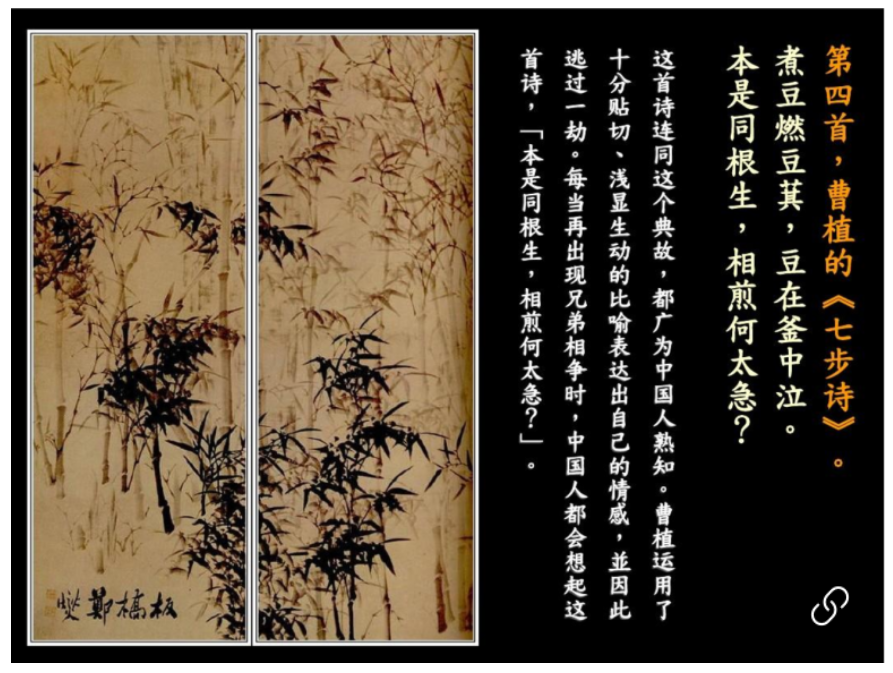 第四首，曹植的《七步诗》。
煮豆燃豆萁，豆在釜中泣。
本是同根生，相煎何太急？
这首诗连同这个典故，都广为中国人熟知。曹植运用了
十分贴切、浅显生动的比喻表达出自己的情感，並因此
逃过一劫。每当再出现兄弟相争时，中国人都会想起这
首诗，「本是同根生，相煎何太急？」。
板橋鄭燮